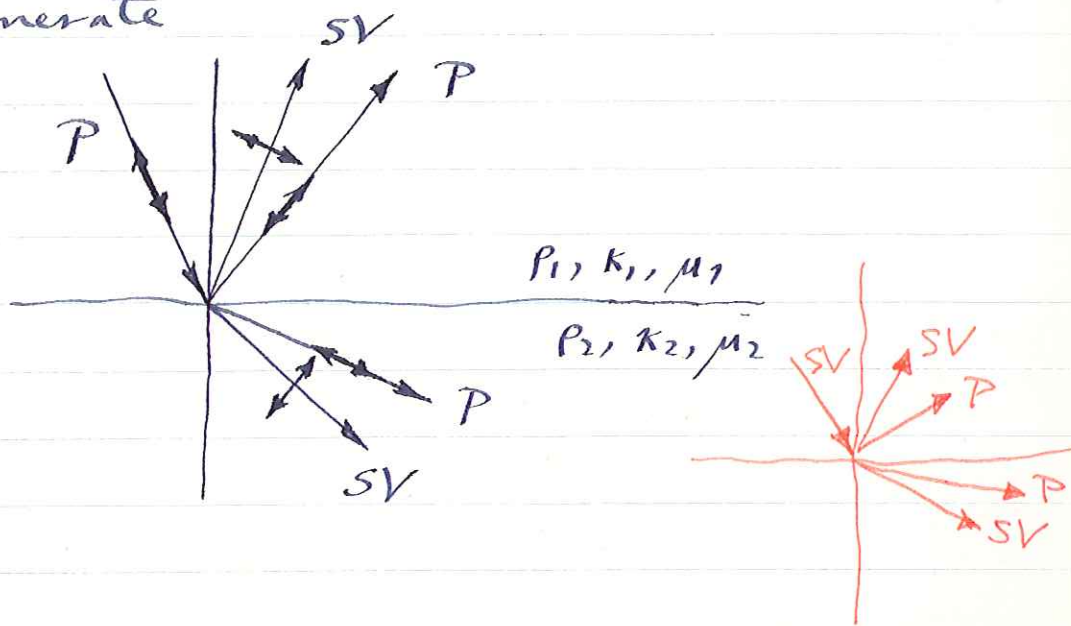 SV
P
P
ρ1, κ1, μ1
ρ2, κ2, μ2
P
SV
SV
SV
P
P
SV